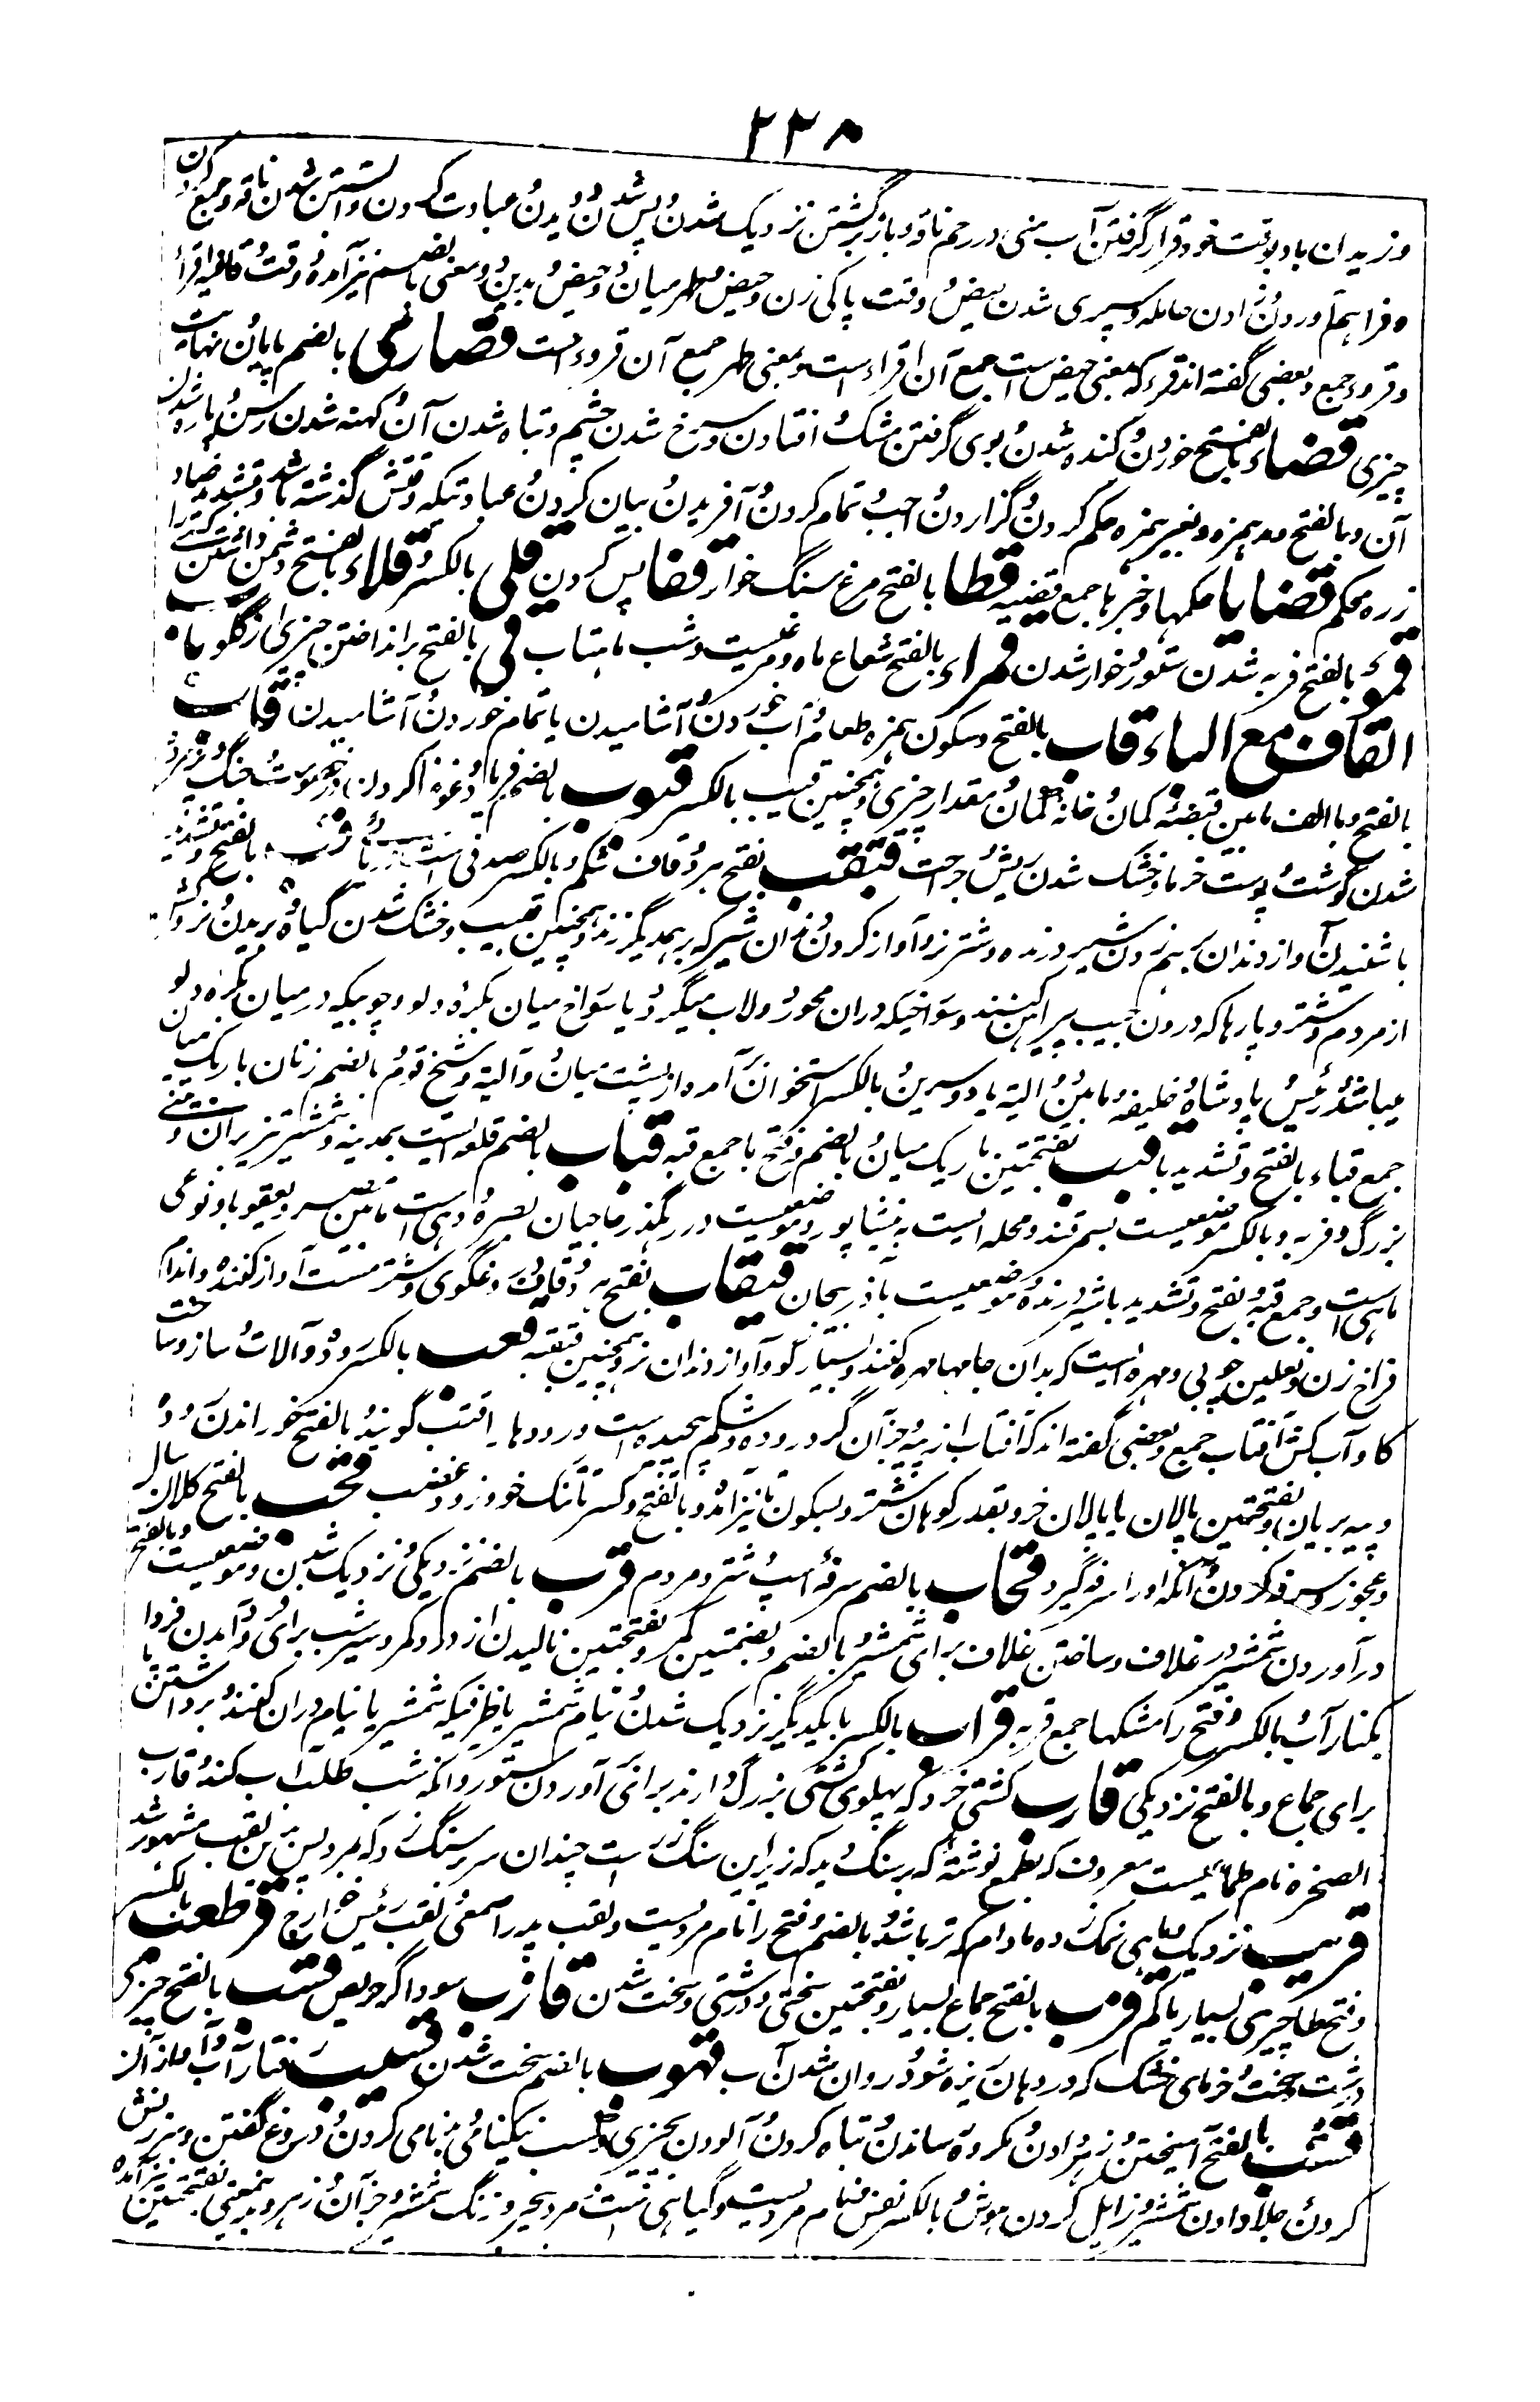 ۲۲۸
وزیدن باد بوقت خود قرار گرفتن آب منی در رحم ناقه و باز برگشتن نزدیک شدن و پس شدن و دیدن عبادت کردن و آبستن شدن ناقه و جمع کردن
و فراهم آوردن و زادن حامله و سپری شدن حیض و وقت پاکی زن و حیض و طهر میان دو حیض و بدین معنی بالضم نیز آمده و وقت و قافیه اقراء
و قروء جمع و بعضی گفته اند قرء که بمعنی حیض است جمع آن اقراء است و بمعنی طهر جمع آن قروء است قصاری بالضم پایان و نهایت
چیزی قضاء بالفتح خوردن و گنده شدن و بوی گرفتن مشک و افتادن و سرخ شدن چشم و تباه شدن آن و کهنه شدن رسن و پاره شدن
آن و بالفتح و مد همزه و بغیر همزه حکم کردن و گزاردن واجب و تمام کردن و آفریدن و بیان کردن و عبادتیکه وقتش گذشته باشد و بتشدید ضاد
زره محکم قضایا حکمها و خبرها جمع قضیه قطا بالفتح مرغ سنگ خوار قفا پس گردن قلی بالکسر و قلاء بالفتح دشمن داشتن کسی را
قمؤ بالفتح فربه شدن ستور و خوار شدن قمراء بالفتح شعاع ماه و مرغیست و شب ماهتاب قی بالفتح برانداختن چیزی از گلو باب
القاف مع الباء قاب بالفتح و سکون همزه طعام و آب خوردن و آشامیدن یا تمام خوردن و آشامیدن قاب
بالفتح و با الف مابین قبضه کمان و خانه کمان و مقدار چیزی و همچنین قیب بالکسر قبوب بالضم
شدن گوشت و پوست خرما و خشک شدن ریش و جراحت قبقب بفتح هر دو قاف شکم و بالکسر صدفی است قب بالفتح و تشدید
با شنیدن آواز دندان بر هم زدن شیر درنده و شتر نر و آواز کردن دندان شیر که بر همدیگر زند و همچنین قبیب و خشک شدن گیاه و بریدن
از مردم و شتر و پارها که درون جیب پیراهن کنند و سوراخیکه دران محور دولاب میگردد یا سوراخ میان بکره و دلو و چوبیکه در میان بکره دلو
میباشد و رئیس و پادشاه و خلیفه و مابین الیه یا دو سرین و بالکسر استخوان برآمده از پشت میان دو الیه و شیخ قوم و بالضم زنان باریک میان
جمع قباء بالفتح و تشدید با قبب بفتحتین باریک میان و بالضم و فتح با جمع قبه قباب بالضم قلعه ایست بمدینه و شمشیر تیز بران و بینی
بزرگ و فربه و بالکسر موضعیست بسمرقند و محله ایست به نیشاپور و موضعیست در رهگذر حاجیان بصره و دهی است مابین مصر و بعقوبا و نوعی
ماهی است و جمع قبه و بفتح و تشدید با شیر درنده و موضعیست باذربیجان قبقاب بفتح هر دو قاف دروغگوی و شتر مست آواز کننده و اندام
فراخ زن و نعلین چوبی و مهره ایست که بدان جامها مهره کنند و بسیار گو و آواز دندان نر و همچنین قبقبه قتب بالکسر روده و آلات و ساز و سامان
گاو آب کش اقتاب جمع و بعضی گفته اند که اقتاب از پیه و جز آن گرد روده و شکم پیچیده است و رودها را قتب گویند و بالفتح خوراندن روده
و پیه بریان و بفتحتین پالان یا پالان خرد بقدر کوهان شتر و بسکون تا نیز آمده و بالفتح و کسر تا تنگ خو و زود غضب قحب بالفتح کلان سال
و عجوز و سرفه کردن و آنکه او را سرفه گیرد قحاب بالضم سرفه اسپ و شتر و مردم قرب بالضم نزدیکی و نزدیک شدن و موضعیست و بالفتح
درآوردن شمشیر در غلاف و ساختن غلاف برای شمشیر و بالضم و بضمتین کمر و بفتحتین نالیدن از درد کمر و سیر شب برای فرود آمدن فردا
بکنار آب و بالکسر و فتح را مشکها جمع قربه قراب بالکسر با یکدیگر نزدیک شدن و نیام شمشیر یا ظرفیکه شمشیر با نیام دران کنند و برداشتن پا
برای جماع و بالفتح نزدیکی قارب کشتی خرد که پهلوی کشتی بزرگ دارند برای آوردن ستور و آنکه شب طلب آب کند و قارب
الصخره نام طماعیست معروف که بطمع نوشته که بر سنگ دید که زیر این سنگ زر است چندان سر بر سنگ زد که مرد پس بدین لقب مشهور شد
قریب نزدیک و ماهی نمک زده مادام که تر باشد و بالضم و فتح را نام مردیست و لقب پدر اصمعی و لقب رئیس خوارج قرطعب بالکسر
و فتح طا چیزی بسیار یا کم قزب بالفتح جماع بسیار و بفتحتین سختی و درشتی و سخت شدن قازب سوداگر حریص قسب بالفتح چیزی
درشت و سخت و خرمای خشک که در دهان ریزه شود و روان شدن آب قسوب بالضم سخت شدن قسیب رفتار آب و آواز آن
قشب بالفتح آمیختن و زهر دادن و مکروه رساندن و تباه کردن و آلودن بچیزی و کسب نیکنامی و بدنامی کردن و دروغ گفتن و سرزنش
کردن و جلا دادن شمشیر و زایل کردن هوش و بالکسر نفس و نام مردیست و گیاهی است و مرد بیخیر و زنگ شمشیر و جز آن و زهر و بدینمعنی بفتحتین نیز آمده